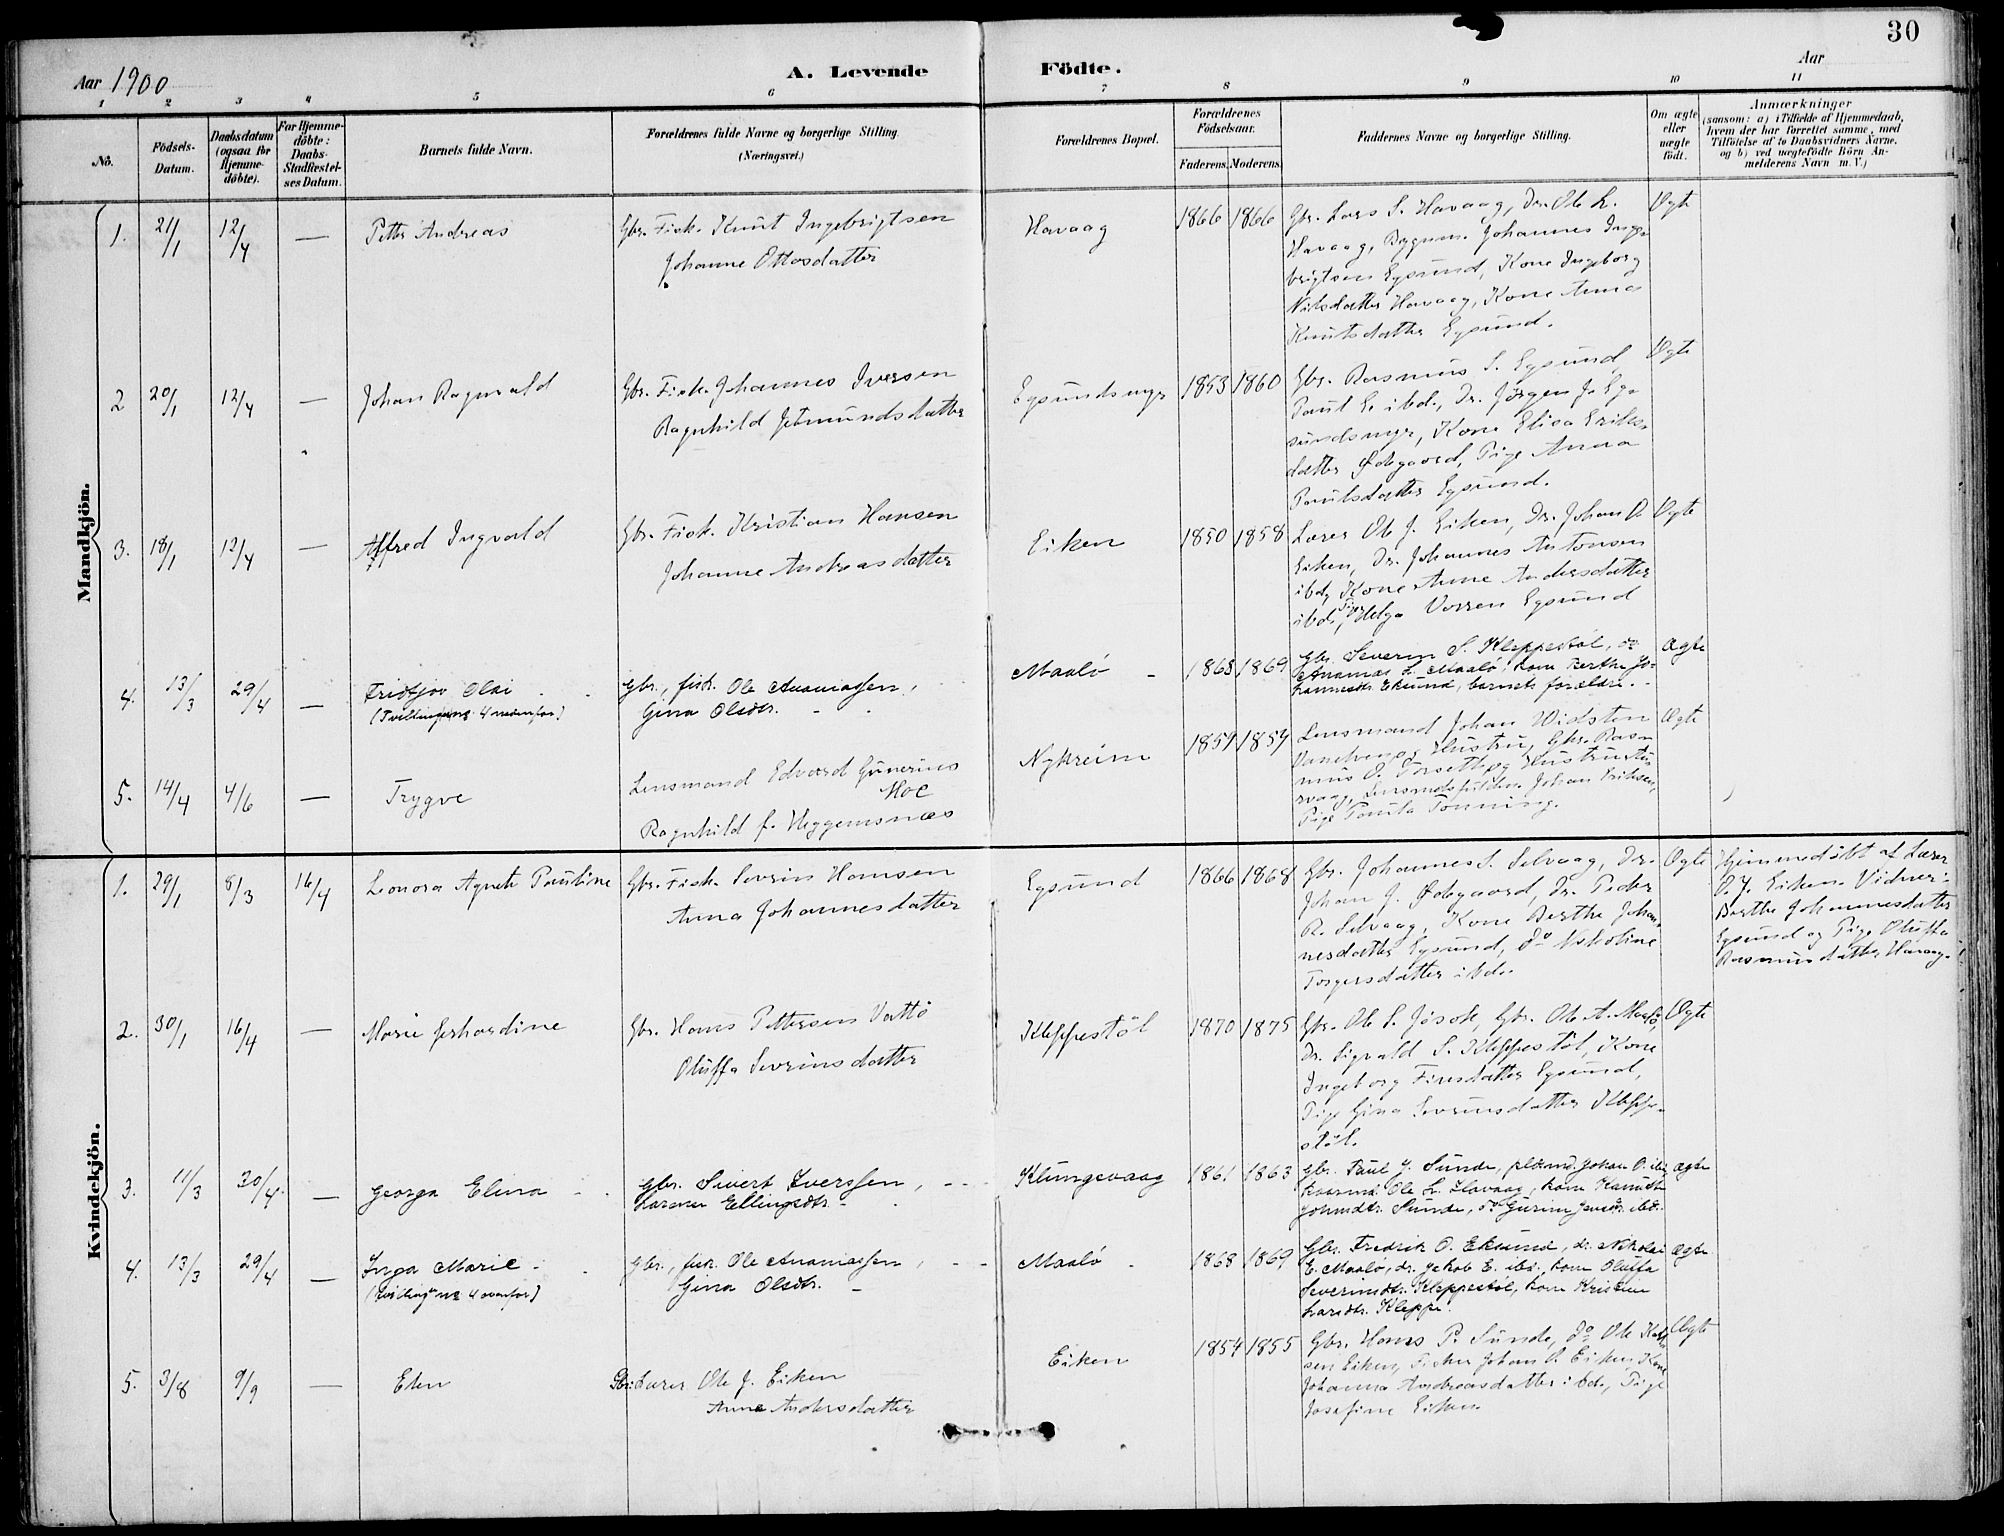 30
Aar 1900
A. Levende Födte.
Aar
1 2 3 4 5 6 7 8 9 10 11
No.
Födsels-
Datum.
Daabsdatum
(ogsaa for
Hjemme-
döbte).
For Hjemme-
döbte:
Daabs-
Stadfæstel-
ses Datum.
Barnets fulde Navn.
Forældrenes fulde Navne og borgerlige Stilling.
(Næringsvei.)
Forældrenes Bopæl.
Forældrenes
Födselsaar.
Faderens. Moderens.
Faddernes Navne og borgerlige Stilling.
Om ægte
eller
uægte
födt.
Anmærkninger
(saasom: a) i Tilfælde af Hjemmedaab,
hvem der har forrettet samme, med
Tilföielse af to Daabsvidners Navne,
og b) ved uægtefödte Börn An-
melderens Navn m. V.)
Mandkjön.
1. 21/1 12/4 — Petter Andreas
Gbr. Fisk. Knut Ingebrigtsen
Johanne Ottosdatter
Havaag 1866 1866
Gbr. Lars S. Havaag, Dr. Ole L.
Havaag, Bygm. Johannes Inge-
brigtsen Egsund, Kone Ingeborg
Nilsdatter Havaag, Kone Anna
Knutsdatter Egsund.
Ægte
2 20/1 12/4 — Johan Ragnvald
Gbr. Fisk. Johannes Iversen
Ragnhild Jetmundsdatter
Egsundsmyr 1853 1860
Gbr. Rasmus S. Egsund
Paul E. ibd., Dr. Jørgen J. Eg-
sundsmyr, Kone Elisa Eriks-
datter Ødegaard, Pige Anna
Paulsdatter Egsund.
Ægte
3. 18/1 12/4 — Alfred Ingvald
Gbr. Fisk. Kristian Hansen
Johanne Andreasdatter
Eiken 1850 1858
Lærer Ole J. Eiken, Dr. Johan O.
Eiken, Dr. Johannes Antonsen
ibd, Kone Anne Andersdatter
ibd, Pige Helga Vorren Egsund
Ægte
4. 13/3 29/4 — Fridtjov Olai
(Tvilling no 4 nedenfor)
Gbr., fisk. Ole Ananiassen,
Gina Olsdtr.
Maalö 1868 1869
Gbr. Severin S. Kleppestöl, do
Ananias L. Maalö, kone Berthe Jo-
hannesdtr. Eksund, barnets forældre.
Ægte
5. 14/4 4/6 — Trygve
Lensmand Edvard Gunerius
Moe
Ragnhild f. Heggemsnæs
Nykreim 1854 1854
Lensmand Johan Widsten
Hustru, Gbr. Ras-
mus O. og Hustru
Johan Eriksen,
Pige Paula Tonning.
Ægte
Kvindekjön.
1. 29/1 8/3 16/4 Leonora Agnete Pauline
Gbr. Fisk. Severin Hansen
Anna Johannesdatter
Egsund 1866 1868
Gbr. Johannes S. Selvaag, Dr.
Johan J. Ødegaard, Dr. Peder
R. Selvaag, Kone Berthe Johan-
nesdatter Egsund, do Nikoline
Torgersdatter ibd.
Ægte
Hjemmedöbt af Lærer
O. J. Eiken. Vidner:
Berthe Johannesdatter
Egsund og Pige Oluffa
Rasmusdatter Havaag.
2. 30/1 16/4 — Marie Gerhardine
Gbr. Hans Pettersen Vattö
Oluffa Severinsdatter
Kleppestöl 1870 1875
Gbr. Ole S. Jösok, Gbr. Ole A. Maalö,
Dr. Sigvald S. Kleppestöl, Kone
Ingeborg Finsdatter Egsund,
Pige Gina Severinsdatter Kleppe-
stöl.
Ægte
3. 11/3 30/4 — Georga Elina
Gbr. Sivert Iverssen,
Karen Ellingsdtr.
Klungevaag 1861 1863
Gbr. Paul J. Sunde, Johan O. ibd.
Ole L. Havaag, kone
Sunde, do Gurine ibd.
ægte
4. 13/3 29/4 — Inga Marie
(tvilling no 4 ovenfor)
Gbr., fisk. Ole Ananiassen,
Gina Olsdtr.
Maalö 1868 1869
Gbr. Fredrik O. Eksund, dr. Nikolai
E. Maalö, dr. Jakob E. ibd., kone Oluffa
Severinsdtr. Kleppestöl, kone Kristine
Larsdtr. Kleppe.
ægte
5. 3/8 9/9 — Elen
Gbr. Lærer Ole J. Eiken
Anne Andersdatter
Eiken 1854 1855
Gbr. Hans P. Sunde, do Ole
sen Eiken, Fisker Johan O. Eiken, Kone
Johanna Andreasdatter ibd., Pige
Josefine Eiken
Ægte